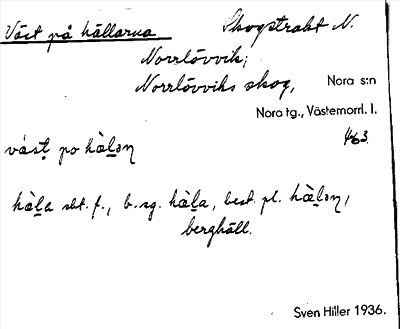 Väst på hällarna Skogstrakt N.
Norrlövvik;
Norrlövviks skog, Nora s:n
Nora tg., Västernorrl. l.
463.
väst̥ po hàḷən
hàḷa sbt. f., b. sg. hàḷa, best. pl. hàḷən,
berghäll.
Sven Hiller 1936.